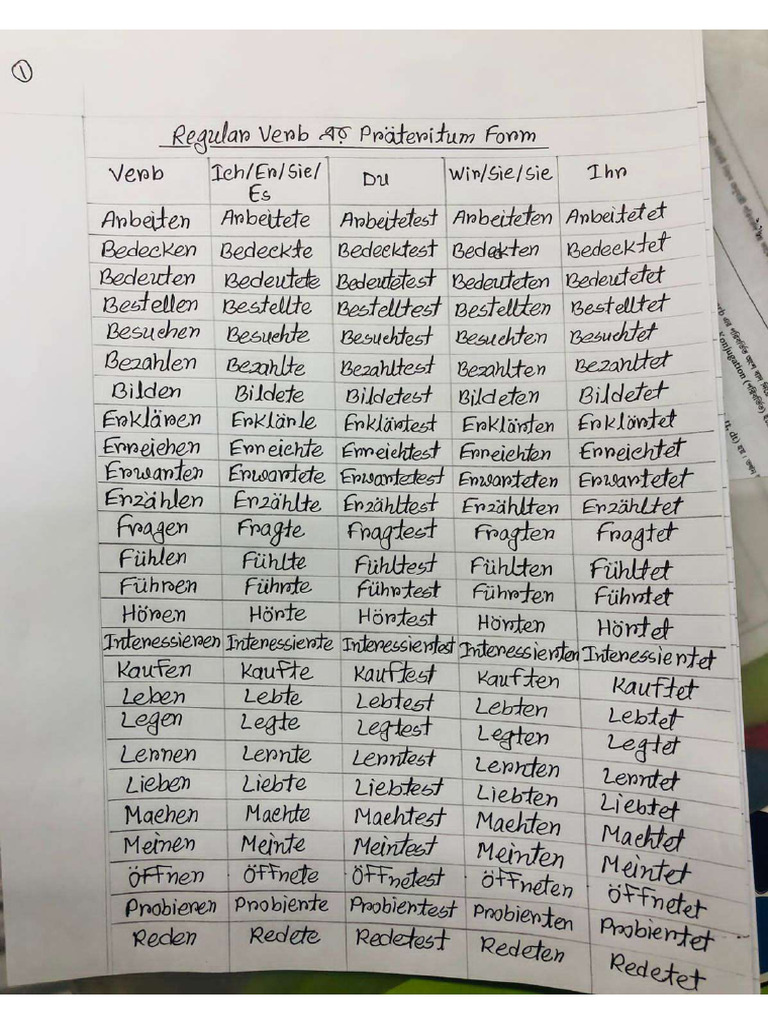 ①
Regular Verb এর Präteritum Form
Verb Ich/Er/Sie/Es Du Wir/Sie/sie Ihr
Arbeiten Arbeitete Arbeitetest Arbeiteten Arbeitetet
Bedecken Bedeckte Bedecktest Bedekten Bedecktet
Bedeuten Bedeutete Bedeutetest Bedeuteten Bedeutetet
Bestellen Bestellte Bestelltest Bestellten Bestelltet
Besuchen Besuchte Besuchtest Besuchten Besuchtet
Bezahlen Bezahlte Bezahltest Bezahlten Bezahltet
Bilden Bildete Bildetest Bildeten Bildetet
Erklären Erklärle Erklärtest Erklärten Erklärtet
Erreichen Erreichte Erreichtest Erreichten Erreichtet
Erwarten Erwartete Erwartetest Erwarteten Erwartetet
Erzählen Erzählte Erzähltest Erzählten Erzähltet
Fragen Fragte Fragtest Fragten Fragtet
Fühlen Fühlte Fühltest Fühlten Fühltet
Führen Führte Führtest Führten Führtet
Hören Hörte Hörtest Hörten Hörtet
Interessieren Interessierte Interessiertest Interessierten Interessiertet
Kaufen Kaufte Kauftest Kauften Kauftet
Leben Lebte Lebtest Lebten Lebtet
Legen Legte Legtest Legten Legtet
Lernen Lernte Lerntest Lernten Lerntet
Lieben Liebte Liebtest Liebten Liebtet
Machen Machte Machtest Machten Machtet
Meinen Meinte Meintest Meinten Meintet
Öffnen Öffnete Öffnetest Öffneten Öffnetet
Probieren Probierte Probiertest Probierten Probiertet
Reden Redete Redetest Redeten Redetet
Konjugation